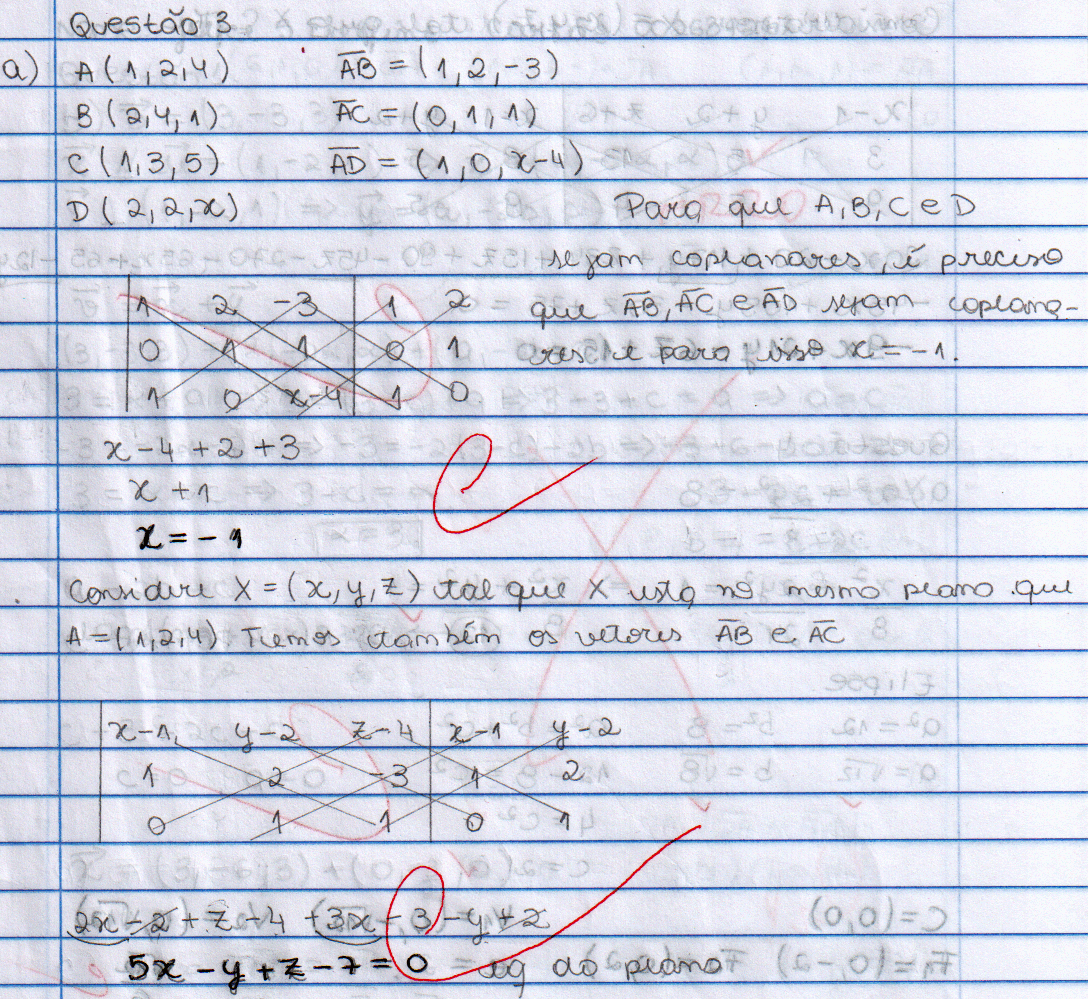 Questão 3
a) A(1,2,4) AB = (1,2,-3)
B(2,4,1) AC = (0,1,1)
C(1,3,5) AD = (1,0,x-4)
D(2,2,x) Para que A,B,C e D
sejam coplanares, é preciso
que AB, AC e AD sejam coplana-
res e para isso x = -1.
1 2 -3 1 2
0 1 1 0 1
1 0 x-4 1 0
x - 4 + 2 + 3
x + 1
x = -1
Considere X = (x,y,z) tal que X está no mesmo plano que
A = (1,2,4). Temos também os vetores AB e AC
x-1 y-2 z-4 x-1 y-2
1 2 -3 1 2
0 1 1 0 1
2x - 2 + z - 4 + 3x - 3 - y + 2
5x - y + z - 7 = 0 eq do plano